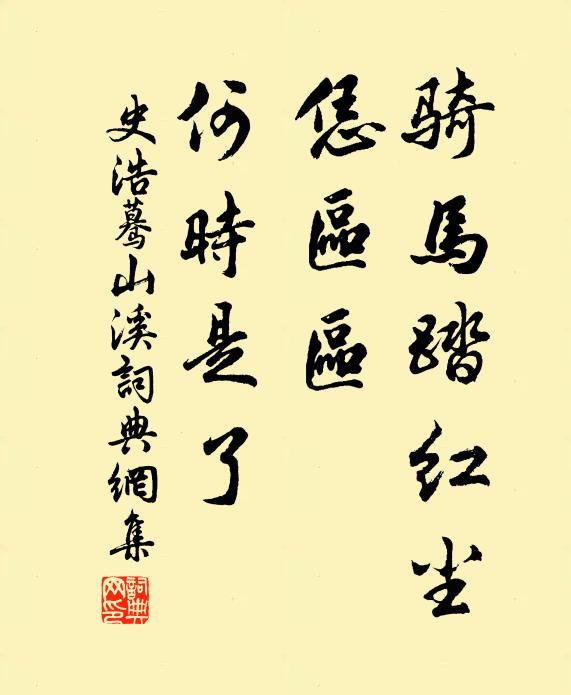 骑馬踏红尘
恁區區
何時是了
史浩蓦山溪詞典網集
詞典网印